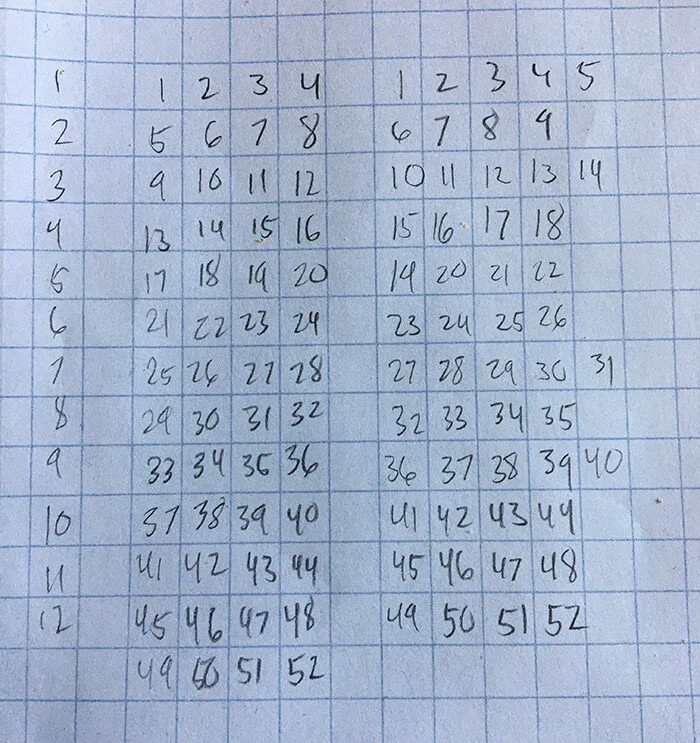 1 1 2 3 4 1 2 3 4 5
2 5 6 7 8 6 7 8 9
3 9 10 11 12 10 11 12 13 14
4 13 14 15 16 15 16 17 18
5 17 18 19 20 19 20 21 22
6 21 22 23 24 23 24 25 26
7 25 26 27 28 27 28 29 30 31
8 29 30 31 32 32 33 34 35
9 33 34 35 36 36 37 38 39 40
10 37 38 39 40 41 42 43 44
11 41 42 43 44 45 46 47 48
12 45 46 47 48 49 50 51 52
49 50 51 52